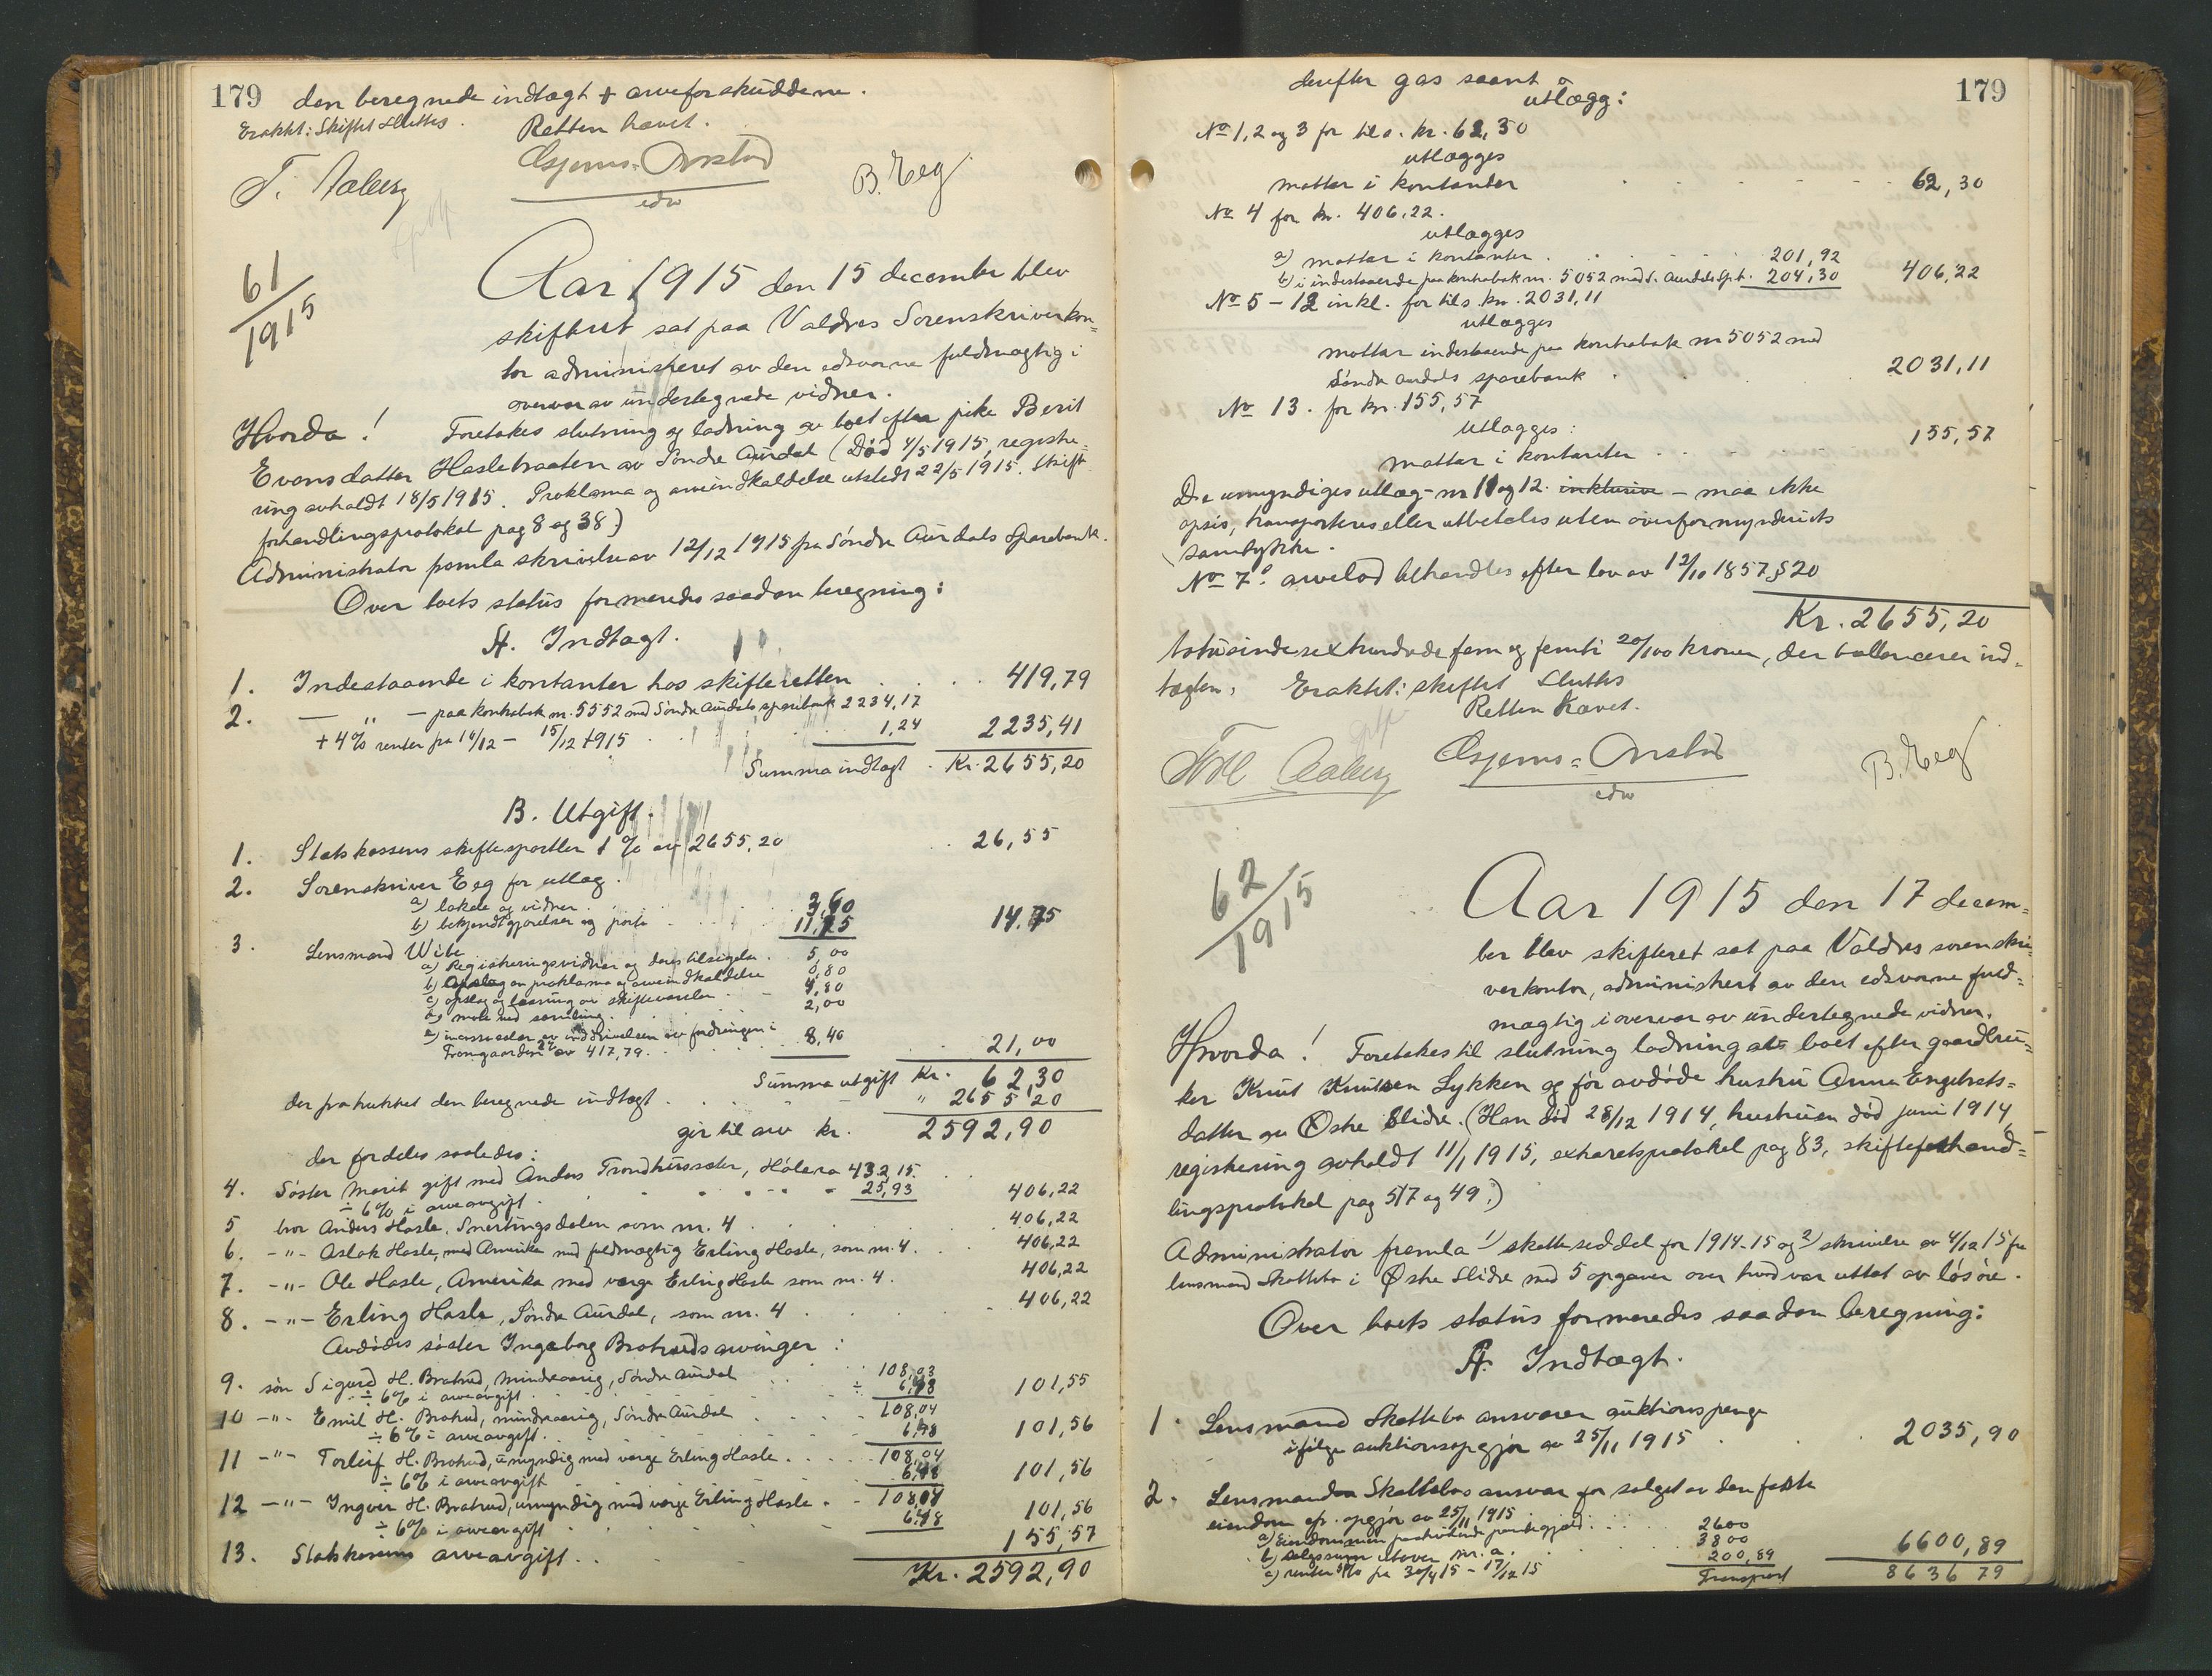 179 den beregnede indtægt + arveforskuddene.
Erakht: Skiftet sluttes. Retten hævet.
T. Aaberg Asjems-Onstad B. Eeg
edsv
61/1915
Aar 1915 den 15 december blev
skifteret sat paa Valdres Sorenskriverkon=
tor administreret av den edsvorne fuldmægtig i
overvær av undertegnede vidner.
Hvorda! Foretokes slutning og lodning av boet efter pike Berit
Evensdatter Haslebraaten av Søndre Aurdal (Død 4/5 1915, registre=
ring avholdt 18/5 1915. Proklama og arveindkaldelse utstedt 22/5 1915. Skifte-
forhandlingsprotokol pag 8 og 38)
Administrator fremla skrivelse av 12/12 1915 fra Søndre Aurdals Sparebank.
Over boets status formeredes saadan beregning:
A. Indtægt.
1. Indestaaende i kontanter hos skifteretten 419,79
2. — " — paa kontrabok nr. 5552 med Søndre Aurdals sparebank 2234,17
+ 4% renter fra 10/12 – 15/12 1915 1,24 2235,41
Summa indtægt Kr. 2655,20
B. Utgift.
1. Statskassens skiftesportler 1 % av 2655,20 26,55
2. Sorenskriver Eeg for utlæg.
a) lokale og vidner 3,60
b) bekjendtgjørelser og porto 11,15 14,75
3. Lensmand Wibe
a) Registreringsvidner og deres tilsigelse 5,00
b) Opslag av proklama og arveindkaldelse 0,80
c) opslag og læsning av skiftevarsler 4,80
d) møte ved samling 2,00
e) incassosalær av inddrivelsen av fordringen i
Fromgaarden 2% av 417,79. 8,40 21,00
Summa utgift Kr. 62,30
der fratrukket den beregnede indtægt " 2655,20
gir til arv kr. 2592,90
der fordeles saaledes:
4. Søster Marit gift med Anders Trondhussæter, Hølera 432,15.
÷ 6% i arveavgift 25,93 406,22
5 bror Anders Hasle, Snertingsdalen som nr. 4 406,22
6. -"- Aslak Hasle, med Amerika med fuldmægtig Erling Hasle, som nr. 4. 406,22
7. -"- Ole Hasle, Amerika med værge Erling Hasle som nr. 4. 406,22
8. -"- Erling Hasle, Søndre Aurdal, som nr. 4 406,22
Avdødes søster Ingeborg Brotruds arvinger:
9. søn Sigurd H. Brotrud, mindreaarig, Søndre Aurdal 108,03
÷ 6% i arveavgift ÷ 6,48 101,55
10 -"- Emil H. Brotrud, mindreaarig, Søndre Aurdal 108,04
÷ 6% i arveavgift. 6,48 101,56
11 -"- Torleif H. Brotrud, umyndig med værge Erling Hasle 108,04
÷ 6% i arveavgift 6,48 101,56
12 -"- Ingvar H. Brotrud, umyndig med værge Erling Hasle 108,04
÷ 6% i arveavgift 6,48 101,56
13. Statskassens arveavgift 155,57
Kr. 2592,90
derefter gas saant 179
utlægg:
No 1,2 og 3 for tils. kr. 62,30
utlægges
mottar i kontanter 62,30
No 4 for kr. 406,22.
utlægges
a) mottar i kontanter 201,92
b) i indestaaende paa kontrabok nr. 5052 med S. Aurdals Spb. 204,30 406,22
No 5 – 12 inkl. for tils. kr. 2031,11
utlægges
mottar indestaaende paa kontrabok nr 5052 med
Søndre Aurdals sparebank 2031,11
No 13. for kr. 155,57
utlægges:
mottar i kontanter 155,57
De umyndiges utlæg - nr 11 og 12. inklusive – maa ikke
opsis, transporteres eller utbetales uten overformynderiets
samtykke.
No 7's arvelod behandles efter lov av 12/10 1857, § 20
Kr. 2655,20
totusindesexhundrede fem og femti 20/100 kroner, der ballancerer ind-
tægten. Erakht: skiftet sluttes
Retten hævet.
Aaberg Asjems-Onstad B. Eeg
edsv
62/1915
Aar 1915 den 17 decem=
ber blev skifteret sat paa Valdres sorenskri=
verkontor, administrert av den edsvorne fuld=
mægtig i overvær av undertegnede vidner.
Hvorda! Foretokes til slutning lodning av boet efter gaardbru=
ker Knut Knutsen Lykken og før avdøde hustru Anne Engebrets=
datter av Østre Slidre. (Han død 28/12 1914, hustruen død juni 1914,
registrering avholdt 11/1 1915, extraretsprotokol pag 83, skifteforhand=
lingsprotokol pag 517 og 49.)
Administrator fremla 1) skatteseddel for 1914-15 og 2) skrivelse av 4/12 15 fra
lensmand Skattebo i Østre Slidre med 5 opgaver over hvad var uttat av løsøre.
Over boets status formeredes saadan beregning:
A. Indtægt.
1. Lensmand Skattebo ansvarer auktionspenge
ifølge auktionsopgjør av 25/11 1915 2035,90
2. Lensmand Skattebos ansvar for salget av den faste
eiendom ef. opgjør av 25/11 1915
a) Eiendommen paahvilende pantegjæld 2600
b) salgssum utover nr. a. 3800
c) renter 5% fra 30/4 15 – 17/12 15 200,89 6600,89
Transport 8636 79